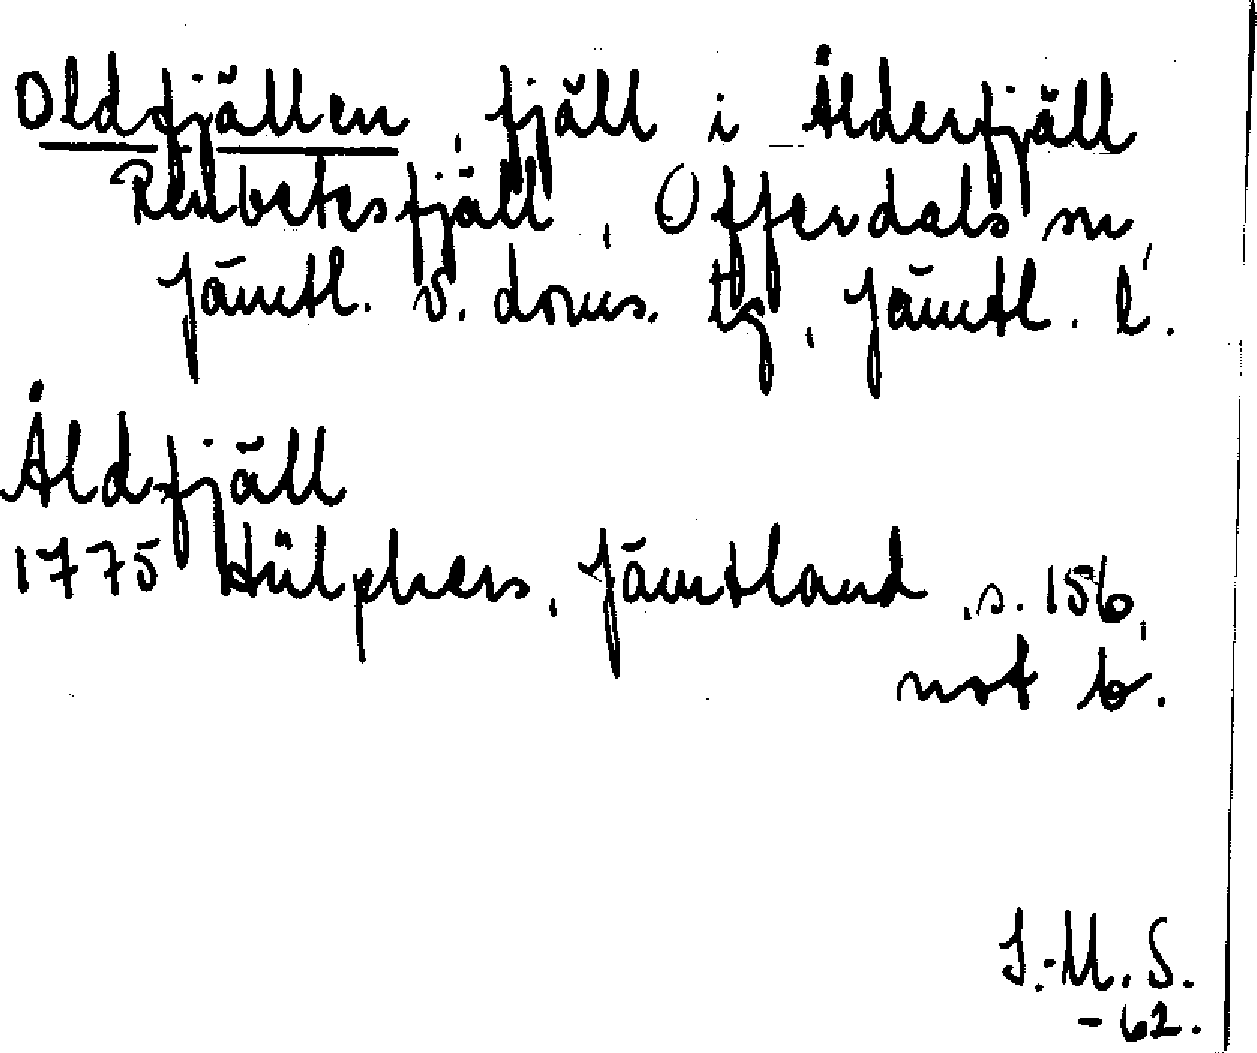 Oldfjällen, fjäll i Ålderfjäll
Renbetesfjäll, Offerdals sn,
Jämtl. v. doms. tg, Jämtl. l.
Åldfjäll
1775 Hülphers, Jämtland, s. 156,
not b.
I.-M. S.
-62.